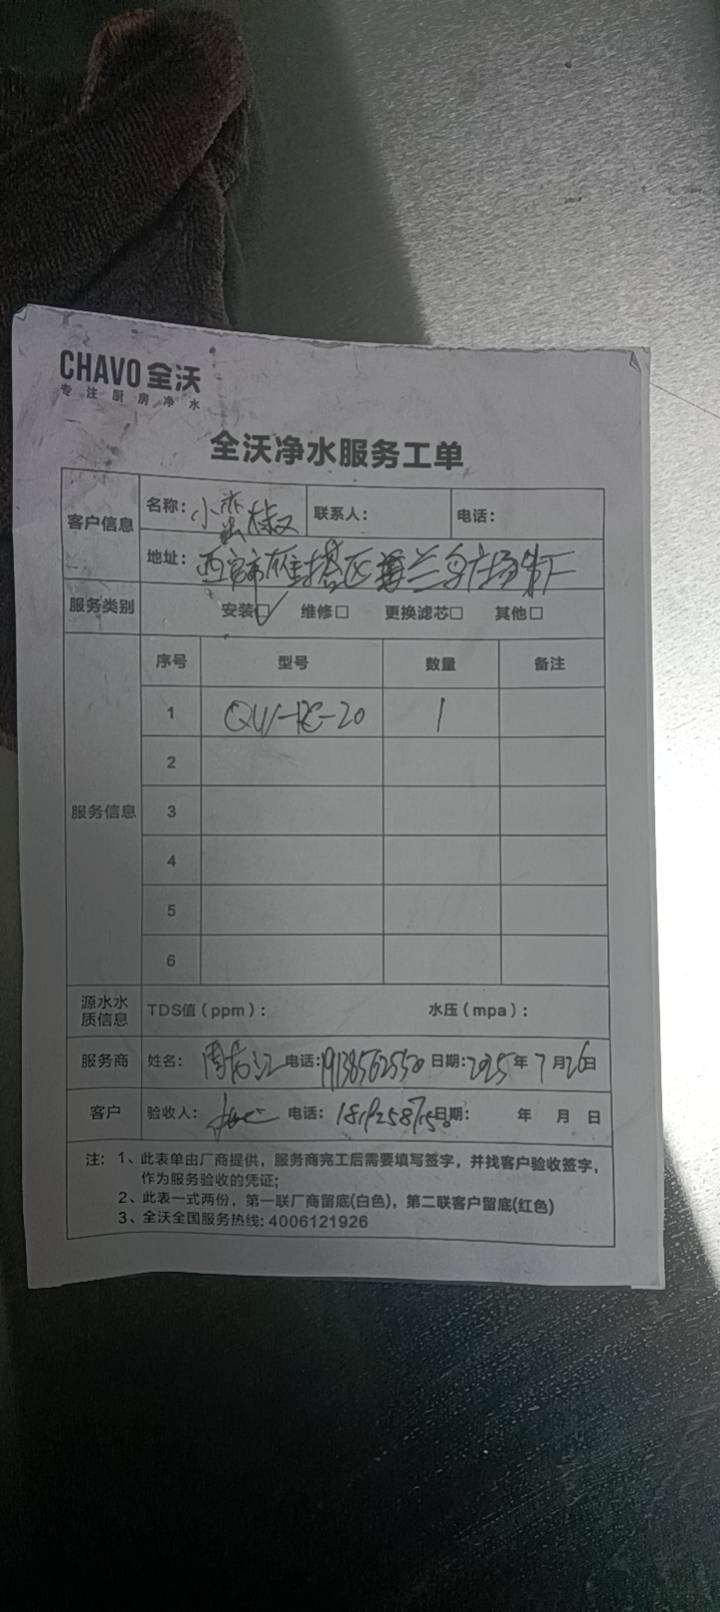 CHAVO 全沃
专注厨房净水
全沃净水服务工单
客户信息 名称：小蛮椒 联系人： 电话：
地址：西安市雁塔区
服务类别 安装☑ 维修□ 更换滤芯□ 其他□
服务信息 序号 型号 数量 备注
1 -20 1
2
3
4
5
6
源水水质信息 TDS值（ppm）： 水压（mpa）：
服务商 姓名：周 电话：19138562550 日期：2025年7月26日
客户 验收人： 电话： 日期： 年 月 日
注：1、此表单由厂商提供，服务商完工后需要填写签字，并找客户验收签字，
作为服务验收的凭证；
2、此表一式两份，第一联厂商留底(白色)，第二联客户留底(红色)
3、全沃全国服务热线：4006121926